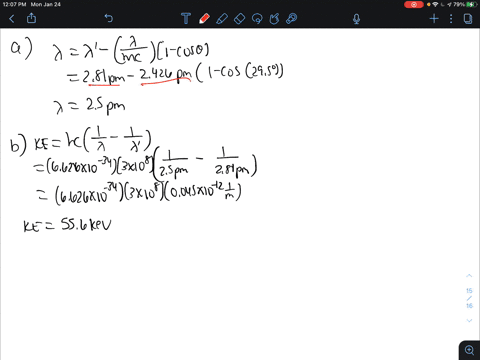 12:07 PM Mon Jan 24
79%
a) λ = λ' − (λ/mc)[1−cosθ]
= 2.81pm − 2.426pm (1−cos(29.5°))
λ = 2.5pm
b) KE = hc(1/λ − 1/λ')
= (6.626×10⁻³⁴)(3×10⁸)(1/2.5pm − 1/2.81pm)
= (6.626×10⁻³⁴)(3×10⁸)(0.045×10⁻¹² 1/m)
KE = 55.6 keV
15
/
16